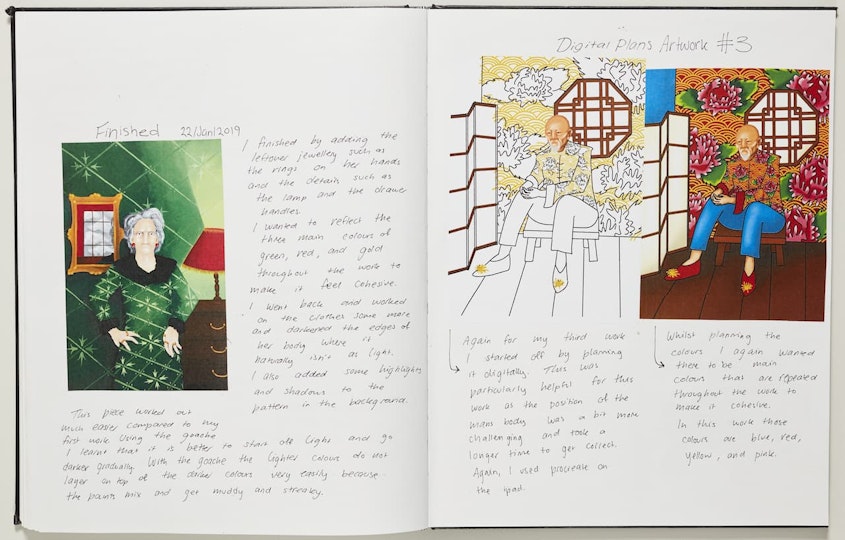 Finished 22/Jan/2019
I finished by adding the
leftover jewellery such as
the rings on her hands
and the details such as
the lamp and the drawe
handles.
I wanted to reflect the
three main colours of
green, red, and gold
throughout the work to
make it feel cohesive.
I went back and worked
on the clothes some more
and darkened the edges of
her body where it
naturally isn't as light.
I also added some highlights
and shadows to the
pattern in the background.
This piece worked out
much easier compared to my
first work. Using the goache
I learnt that it is better to start off light and go
darker gradually. With the goache the lighter colours do not
layer on top of the darker colours very easily because
the paints mix and get muddy and streaky.
Digital Plans Artwork #3
Again for my third work
I started off by planning
it digitally. This was
particularly helpful for this
work as the position of the
mans body was a bit more
challenging and took a
longer time to get correct.
Again, I used procreate on
the ipad.
Whilst planning the
colours I again wanted
there to be main
colours that are repeated
throughout the work to
make it cohesive.
In this work those
colours are blue, red,
yellow, and pink.